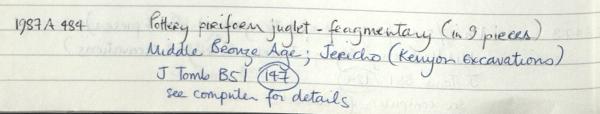 1987A484 Pottery piriform juglet - fragmentary (in 9 pieces)
Middle Bronze Age; Jericho (Kenyon excavations)
J Tomb B51 147
see computer for details